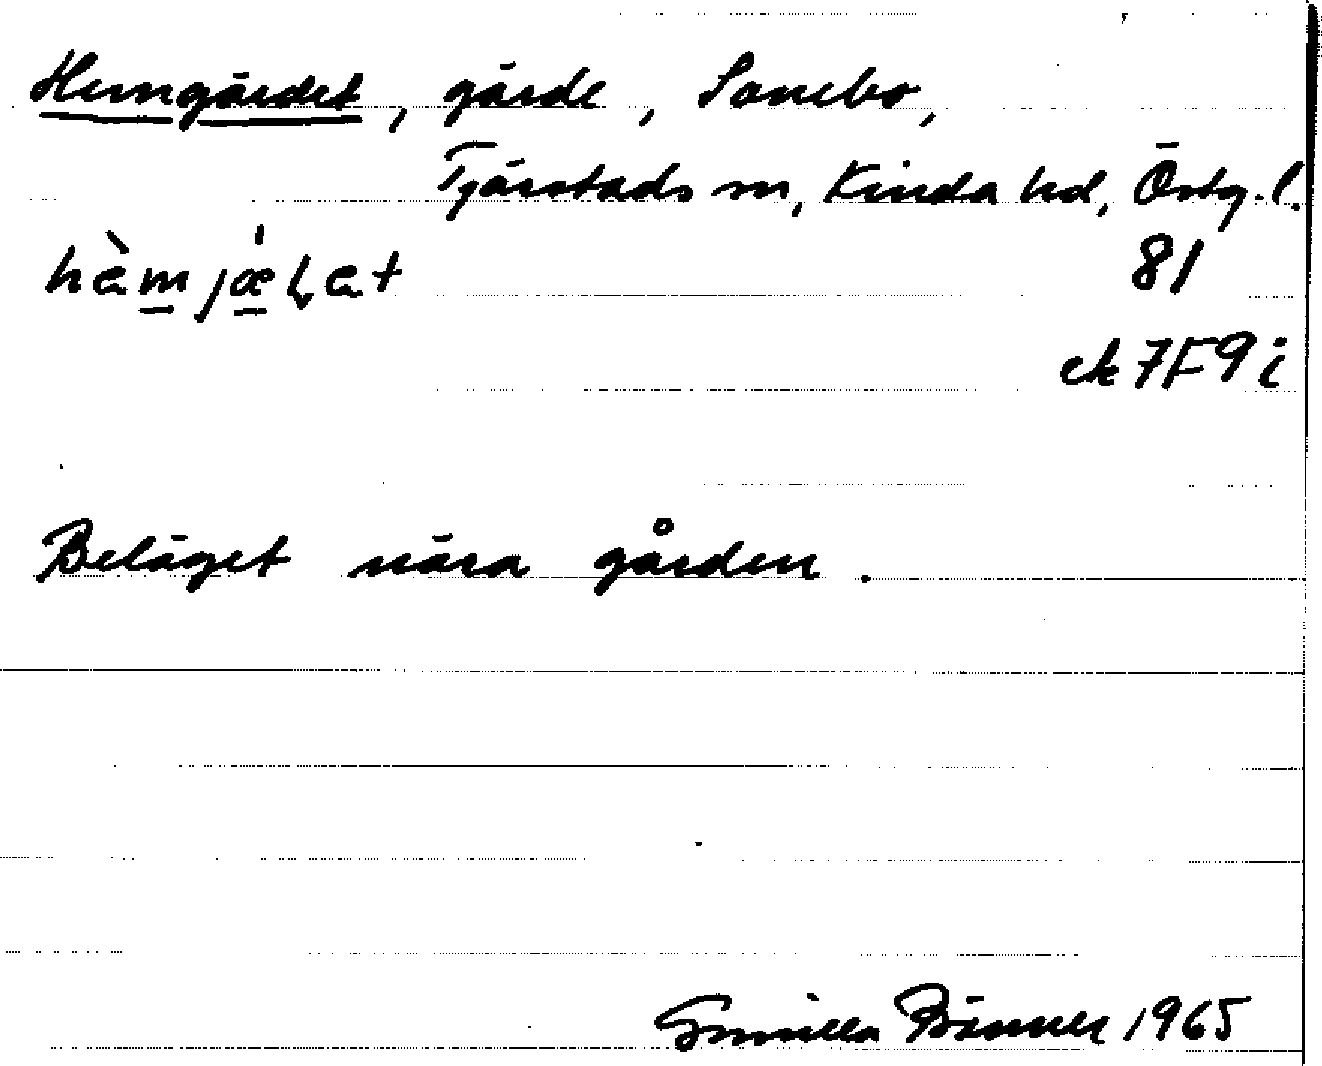 Hemgärdet, gärde, Sonebo,
Tjärstads sn, Kinda hd, Östg. l.
81
ek 7F9i
Beläget nära gården.
Gunilla 1965